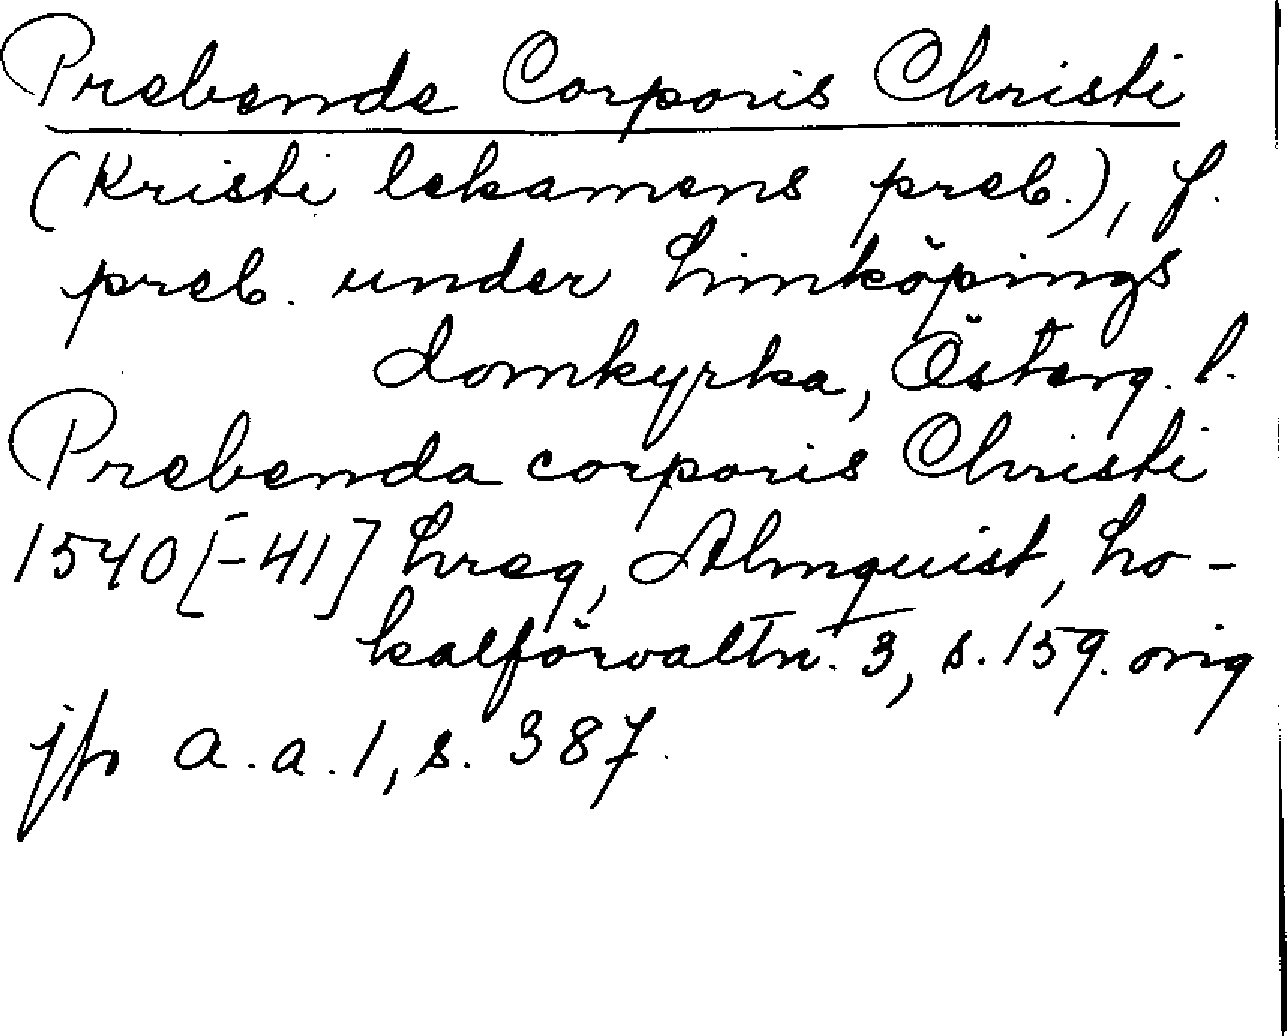 Prebende Corporis Christi
(Kristi lekamens preb.), f.
preb. under Linköpings
domkyrka, Österg. l.
Prebenda corporis Christi
1540[-41] Lreg, Almquist, Lo-
kalförvaltn. 3, s. 159. orig
jfr a.a. 1, s. 387.